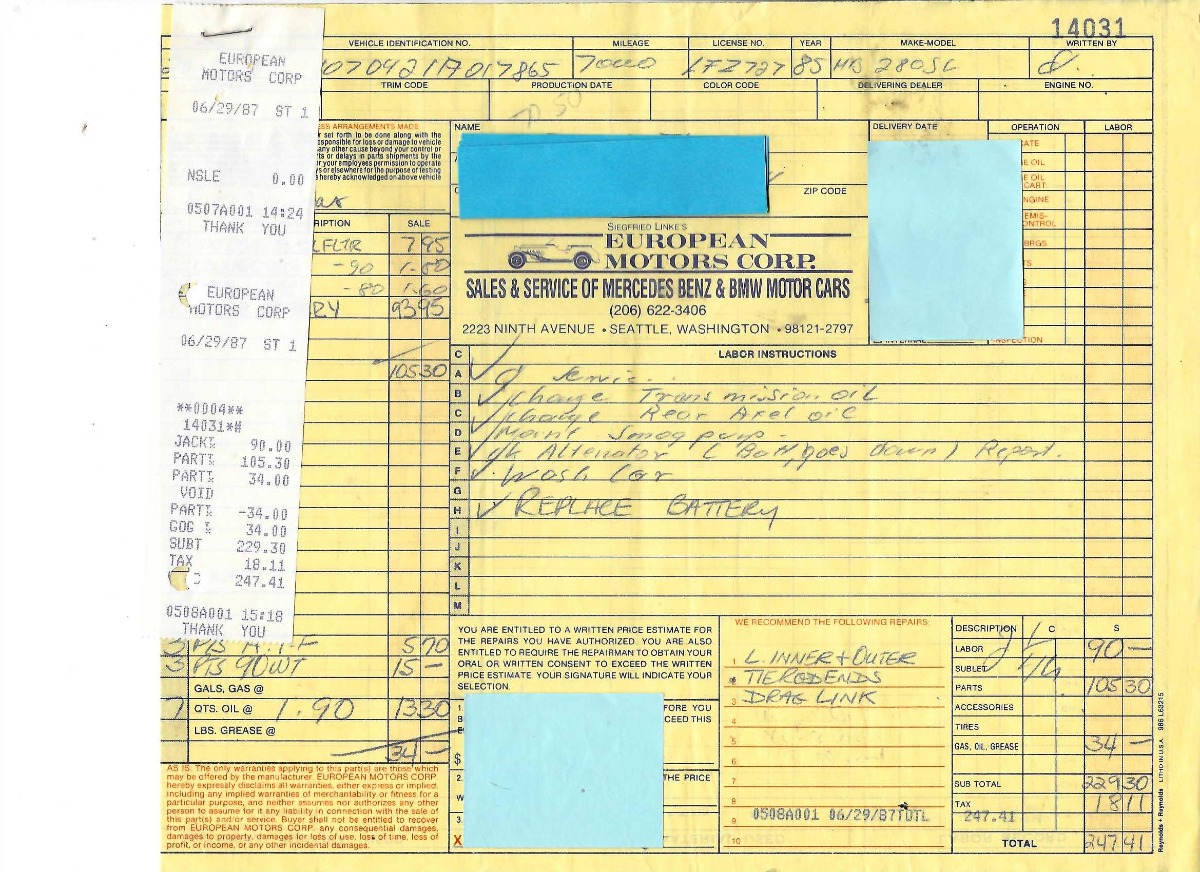 14031
VEHICLE IDENTIFICATION NO. MILEAGE LICENSE NO. YEAR MAKE-MODEL WRITTEN BY
85 280SL
TRIM CODE PRODUCTION DATE COLOR CODE DELIVERING DEALER ENGINE NO.
EUROPEAN
MOTORS CORP
06/29/87 ST 1
NSLE 0.00
0507A001 14:24
THANK YOU
EUROPEAN
MOTORS CORP
06/29/87 ST 1
**0004**
14031*#
JACK 90.00
PART 105.30
PART 34.00
VOID
PART -34.00
GOG 34.00
SUBT 229.30
TAX 18.11
C 247.41
0508A001 15:18
THANK YOU
SS ARRANGEMENTS MADE
set forth to be done along with the
sponsible for loss or damage to vehicle
any other cause beyond your control or
ts or delays in parts shipments by the
r your employees permission to operate
s or elsewhere for the purpose of testing
hereby acknowledged on above vehicle
RIPTION SALE
LFLTR 7.95
-90 1.80
-80 1.60
RY 93.95
105 30
5 70
3 PTS 90WT 15 -
GALS, GAS @
7 QTS. OIL @ 1.90 13 30
LBS. GREASE @
34 -
AS IS. The only warranties applying to this part(s) are those which
may be offered by the manufacturer. EUROPEAN MOTORS CORP.
hereby expressly disclaims all warranties, either express or implied,
including any implied warranties of merchantability or fitness for a
particular purpose, and neither assumes nor authorizes any other
person to assume for it any liability in connection with the sale of
this part(s) and/or service. Buyer shall not be entitled to recover
from EUROPEAN MOTORS CORP. any consequential damages,
damages to property, damages for loss of use, loss of time, loss of
profit, or income, or any other incidental damages.
NAME
ZIP CODE
DELIVERY DATE
OPERATION LABOR
CATE
E OIL
E OIL
CART.
NGINE
EMIS-
ONTROL
BRGS.
TS
INSPECTION
SIEGFRIED LINKE'S
EUROPEAN
MOTORS CORP.
SALES & SERVICE OF MERCEDES BENZ & BMW MOTOR CARS
(206) 622-3406
2223 NINTH AVENUE • SEATTLE, WASHINGTON • 98121-2797
C LABOR INSTRUCTIONS
A
B Change Transmission oil
C Change Rear Axel oil
D Smog pump -
E Alternator ( Batt, goes down ) Report.
F Wash Car
G
H REPLACE BATTERY
I
J
K
L
M
YOU ARE ENTITLED TO A WRITTEN PRICE ESTIMATE FOR
THE REPAIRS YOU HAVE AUTHORIZED. YOU ARE ALSO
ENTITLED TO REQUIRE THE REPAIRMAN TO OBTAIN YOUR
ORAL OR WRITTEN CONSENT TO EXCEED THE WRITTEN
PRICE ESTIMATE. YOUR SIGNATURE WILL INDICATE YOUR
SELECTION.
1. FORE YOU
CEED THIS
$
2. THE PRICE
W
3.
X
WE RECOMMEND THE FOLLOWING REPAIRS
1 L. INNER + OUTER
TIERODENDS
3 DRAG LINK
4
5
6
7
8
9 0508A001 06/29/87TOTL 247.41
10
DESCRIPTION C S
LABOR 90 -
SUBLET
PARTS 105 30
ACCESSORIES
TIRES
GAS, OIL, GREASE 34 -
SUB TOTAL 229 30
TAX 18 11
TOTAL 247 41
Reynolds + Reynolds LITHO IN U.S.A. 986 L63215